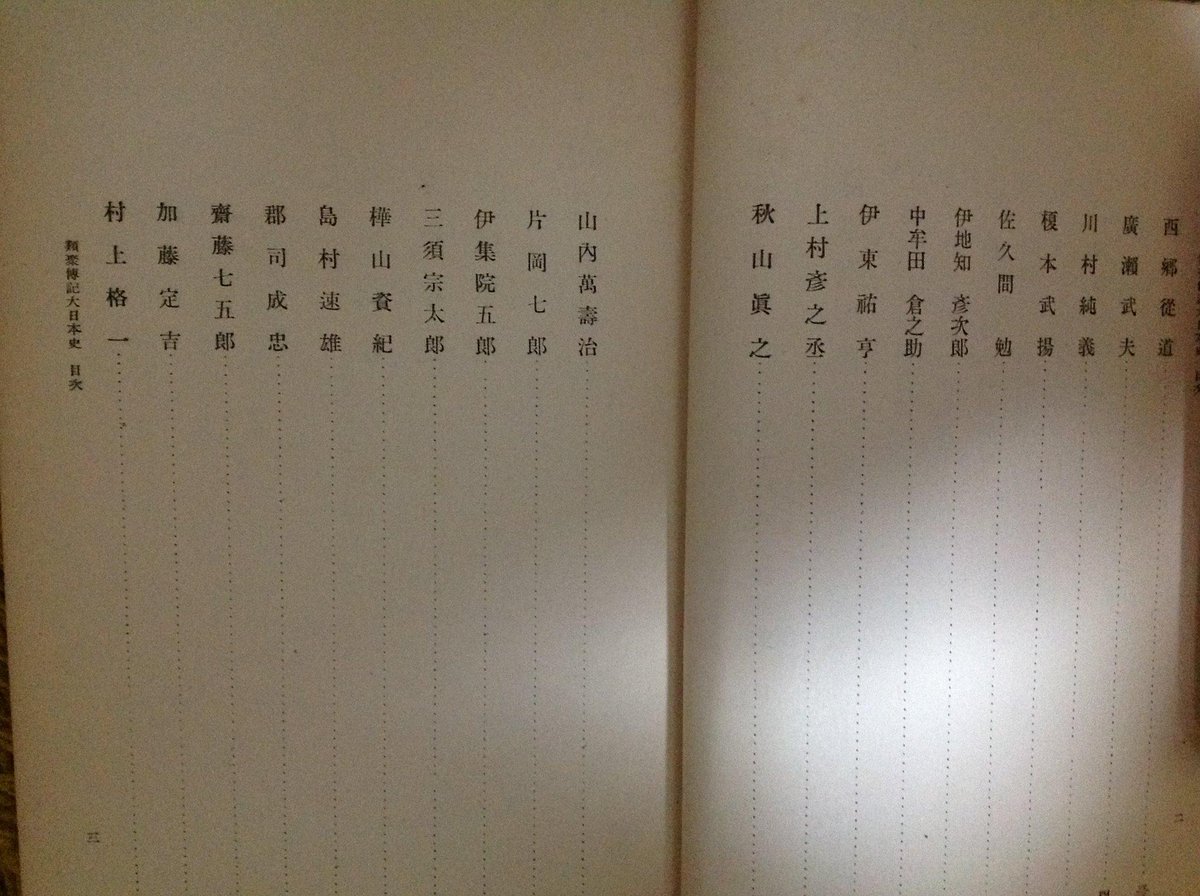 西鄕從道
廣瀨武夫
川村純義
榎本武揚
佐久間勉
伊地知彥次郎
中牟田倉之助
伊東祐亨
上村彥之丞
秋山眞之
二
山內萬壽治
片岡七郎
伊集院五郎
三須宗太郎
樺山資紀
島村速雄
郡司成忠
齋藤七五郎
加藤定吉
村上格一
類聚傳記大日本史 目次
三